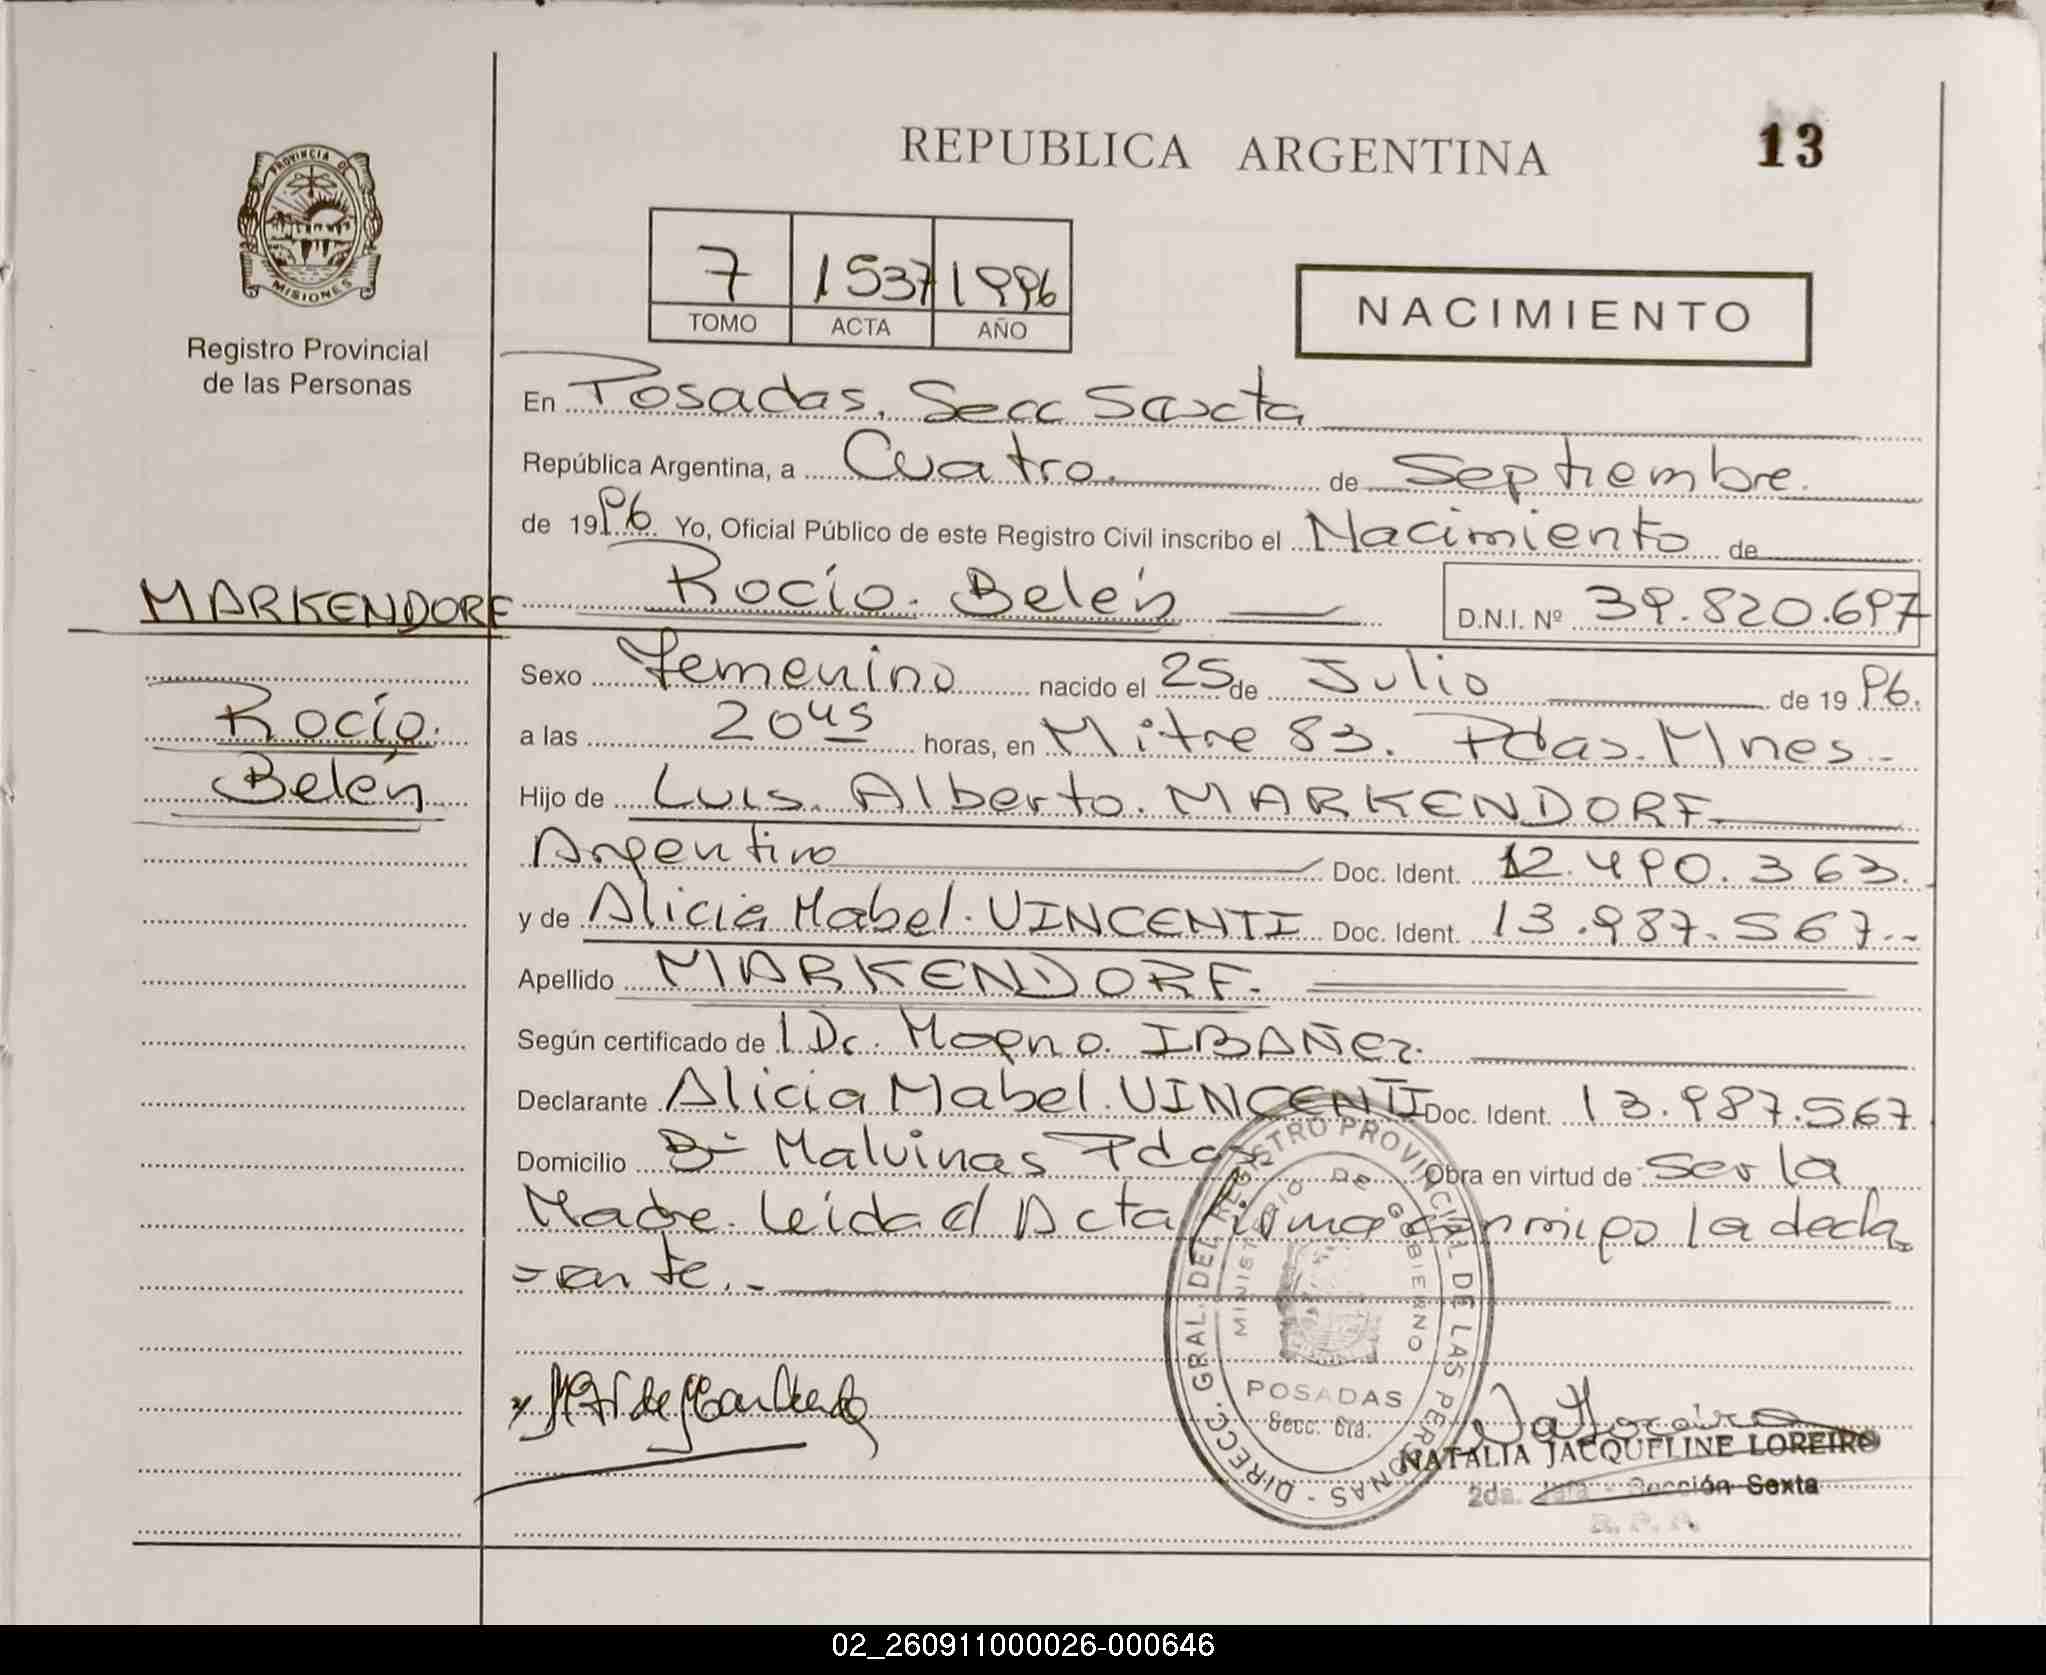 REPUBLICA ARGENTINA
13
PROVINCIA DE
MISIONES
Registro Provincial
de las Personas
7 1537 1996
TOMO ACTA AÑO
NACIMIENTO
En Posadas. Secc Sexta
República Argentina, a Cuatro. de Septiembre.
de 1996 Yo, Oficial Público de este Registro Civil inscribo el Nacimiento de
MARKENDORF
Rocío. Belén
D.N.I. Nº 39.820.697
Rocío.
Belén
Sexo Femenino nacido el 25 de Julio de 19 96.
a las 20 45 horas, en Mitre 83. Pdas. Mnes.-
Hijo de Luis. Alberto. MARKENDORF.
Argentino Doc. Ident. 12.490.363.
y de Alicia Mabel. VINCENTI Doc. Ident. 13.987.567.-
Apellido MARKENDORF.
Según certificado de l Dr. Magno. IBAÑEz.
Declarante Alicia Mabel. VINCENTI Doc. Ident. 13.987.567
Domicilio Bº Malvinas Pdas. Obra en virtud de Ser la
Madre. leida el Acta firma conmigo la decla
=rante.-
DIRECC. GRAL. DEL REGISTRO PROVINCIAL DE LAS PERSONAS -
MINISTERIO DE GOBIERNO
POSADAS
Secc. 6ta.
NATALIA JACQUELINE LOREIRO
2da. Jefa - Sección Sexta
R. P. P.
02_260911000026-000646